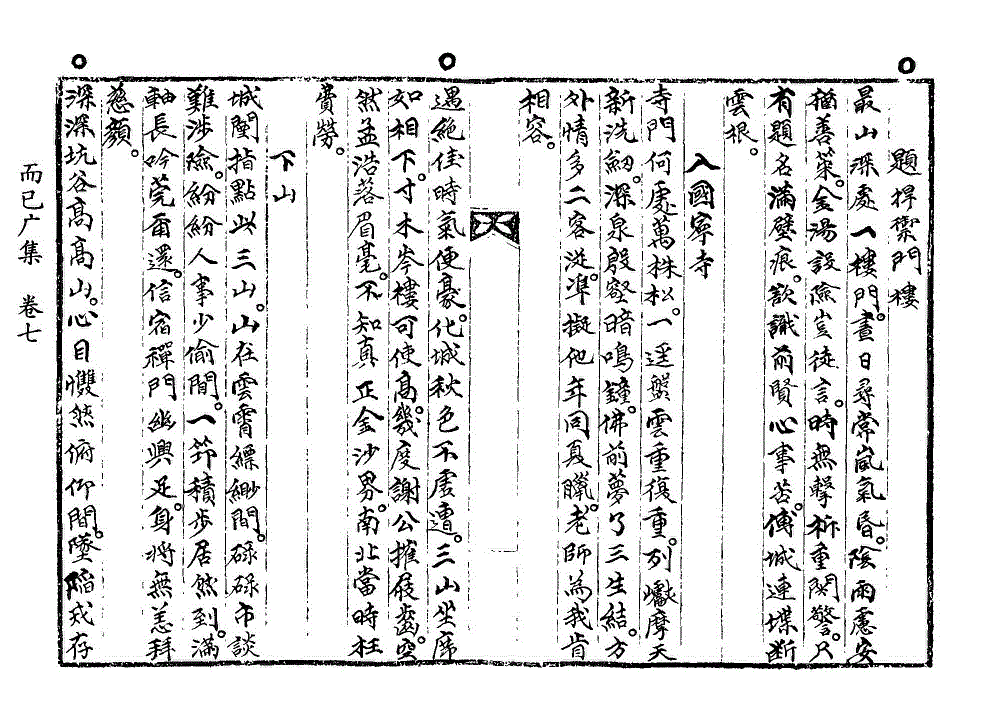 題捍禦門樓
最山深處一樓門。晝日尋常嵐氣昏。陰雨慮安
猶善策。金湯設險豈徒言。時無擊柝重関警。只
有題名滿壁痕。欲識前賢心事苦。傅城連堞断
雲根。
入國寧寺
寺門何處萬株松。一逕盤雲重復重。列巘摩天
新洗劒。深泉殷壑暗鳴鐘。佛前夢了三生結。方
外情多二客泚。準擬他年同夏臘。老師為我肯
相容。
遇絶佳時氣便豪。化城秋色不虚遭。三山坐席
如相下。寸木岑樓可使高。幾度謝公摧屐齒。空
然孟浩落眉毫。不知真正金沙界。南北當時枉
費勞。
下山
城闉指點此三山。山在雲霄縹緲間。碌碌市談
難涉險。紛紛人事少偷閒。一筇積步居然到。滿
軸長吟莞甭還。信宿禪門幽興足。身將無恙拜
慈顏。
深深坑谷高高山。心目戄然俯仰間。墜陷戒存
而已广集 卷七